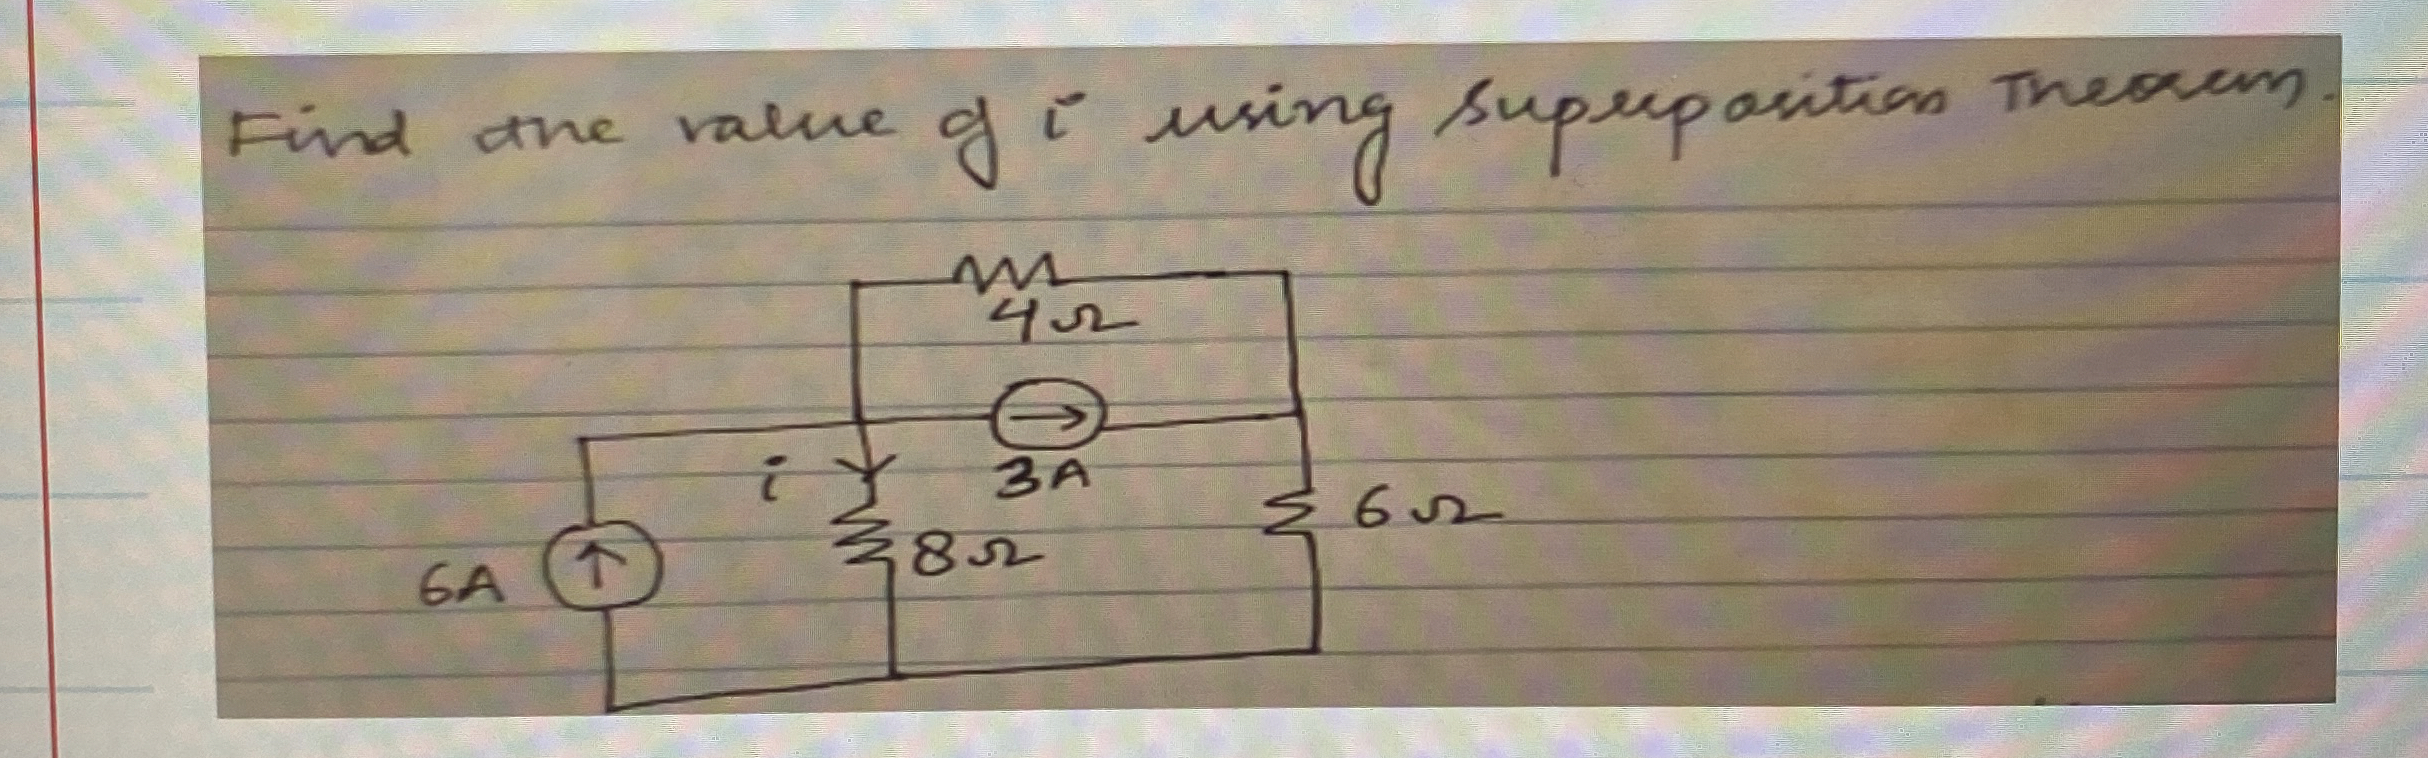 Find the value of i using Superposition Theorem.
4Ω
i
3A
6Ω
8Ω
6A